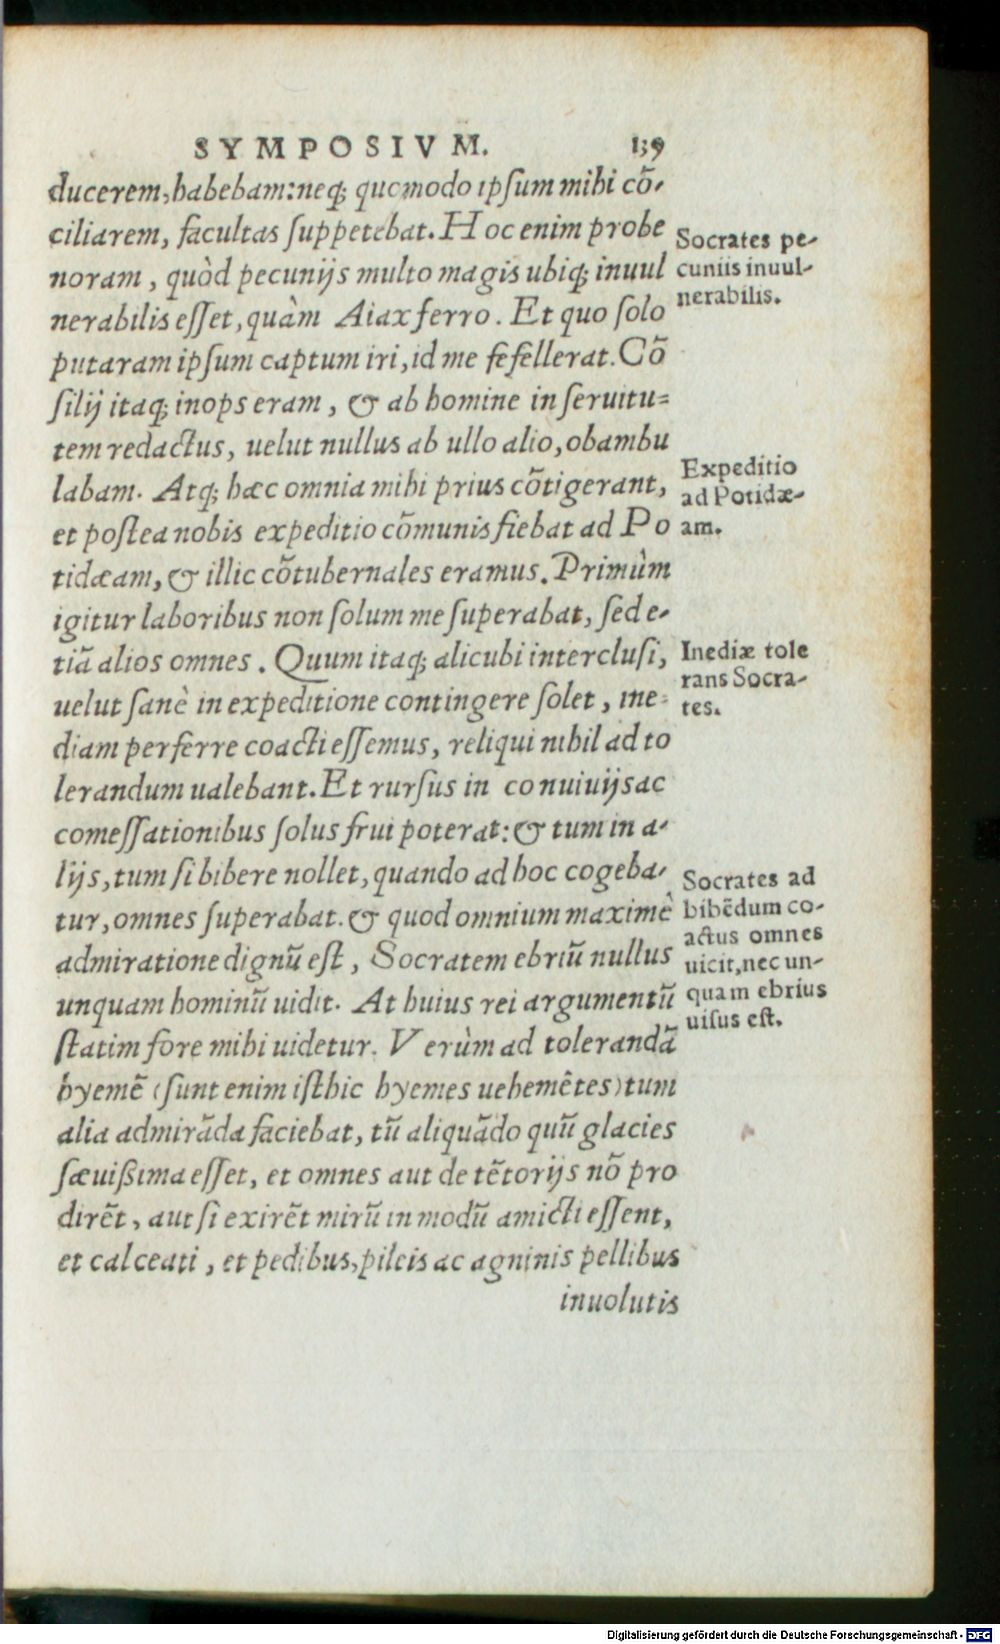 SYMPOSIVM. 139
ducerem, habebam: neq; quomodo ipsum mihi cō-
ciliarem, facultas suppetebat. Hoc enim probe
noram, quòd pecunijs multo magis ubiq; inuul
nerabilis esset, quàm Aiax ferro. Et quo solo
putaram ipsum captum iri, id me fefellerat. Cō
silij itaq; inops eram, & ab homine in seruitu=
tem redactus, uelut nullus ab ullo alio, obambu
labam. Atq; hæc omnia mihi prius cōtigerant,
et postea nobis expeditio cōmunis fiebat ad Po
tidæam, & illic cōtubernales eramus. Primùm
igitur laboribus non solum me superabat, sed e-
tiã alios omnes. Quum itaq; alicubi interclusi,
uelut sanè in expeditione contingere solet, ine-
diam perferre coacti essemus, reliqui nihil ad to
lerandum ualebant. Et rursus in conuiuijs ac
comessationibus solus frui poterat: & tum in a-
lijs, tum si bibere nollet, quando ad hoc cogeba-
tur, omnes superabat. & quod omnium maximè
admiratione dignū est, Socratem ebriū nullus
unquam hominū uidit. At huius rei argumentū
statim fore mihi uidetur. Verùm ad tolerandã
hyemē (sunt enim isthic hyemes uehemētes) tum
alia admirãda faciebat, tū aliquãdo quū glacies
sæuißima esset, et omnes aut de tētorijs nō pro
dirēt, aut si exirēt mirū in modū amicti essent,
et calceati, et pedibus, pileis ac agninis pellibus
inuolutis
Socrates pe-
cuniis inuul-
nerabilis.
Expeditio
ad Potidæ-
am.
Inediæ tole
rans Socra-
tes.
Socrates ad
bibēdum co-
actus omnes
uicit, nec un-
quam ebrius
uisus est.
Digitalisierung gefördert durch die Deutsche Forschungsgemeinschaft - DFG